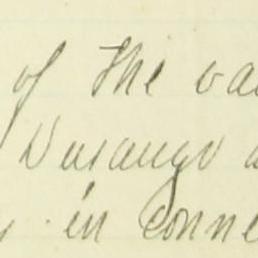 of the va
Durango a
y in conne